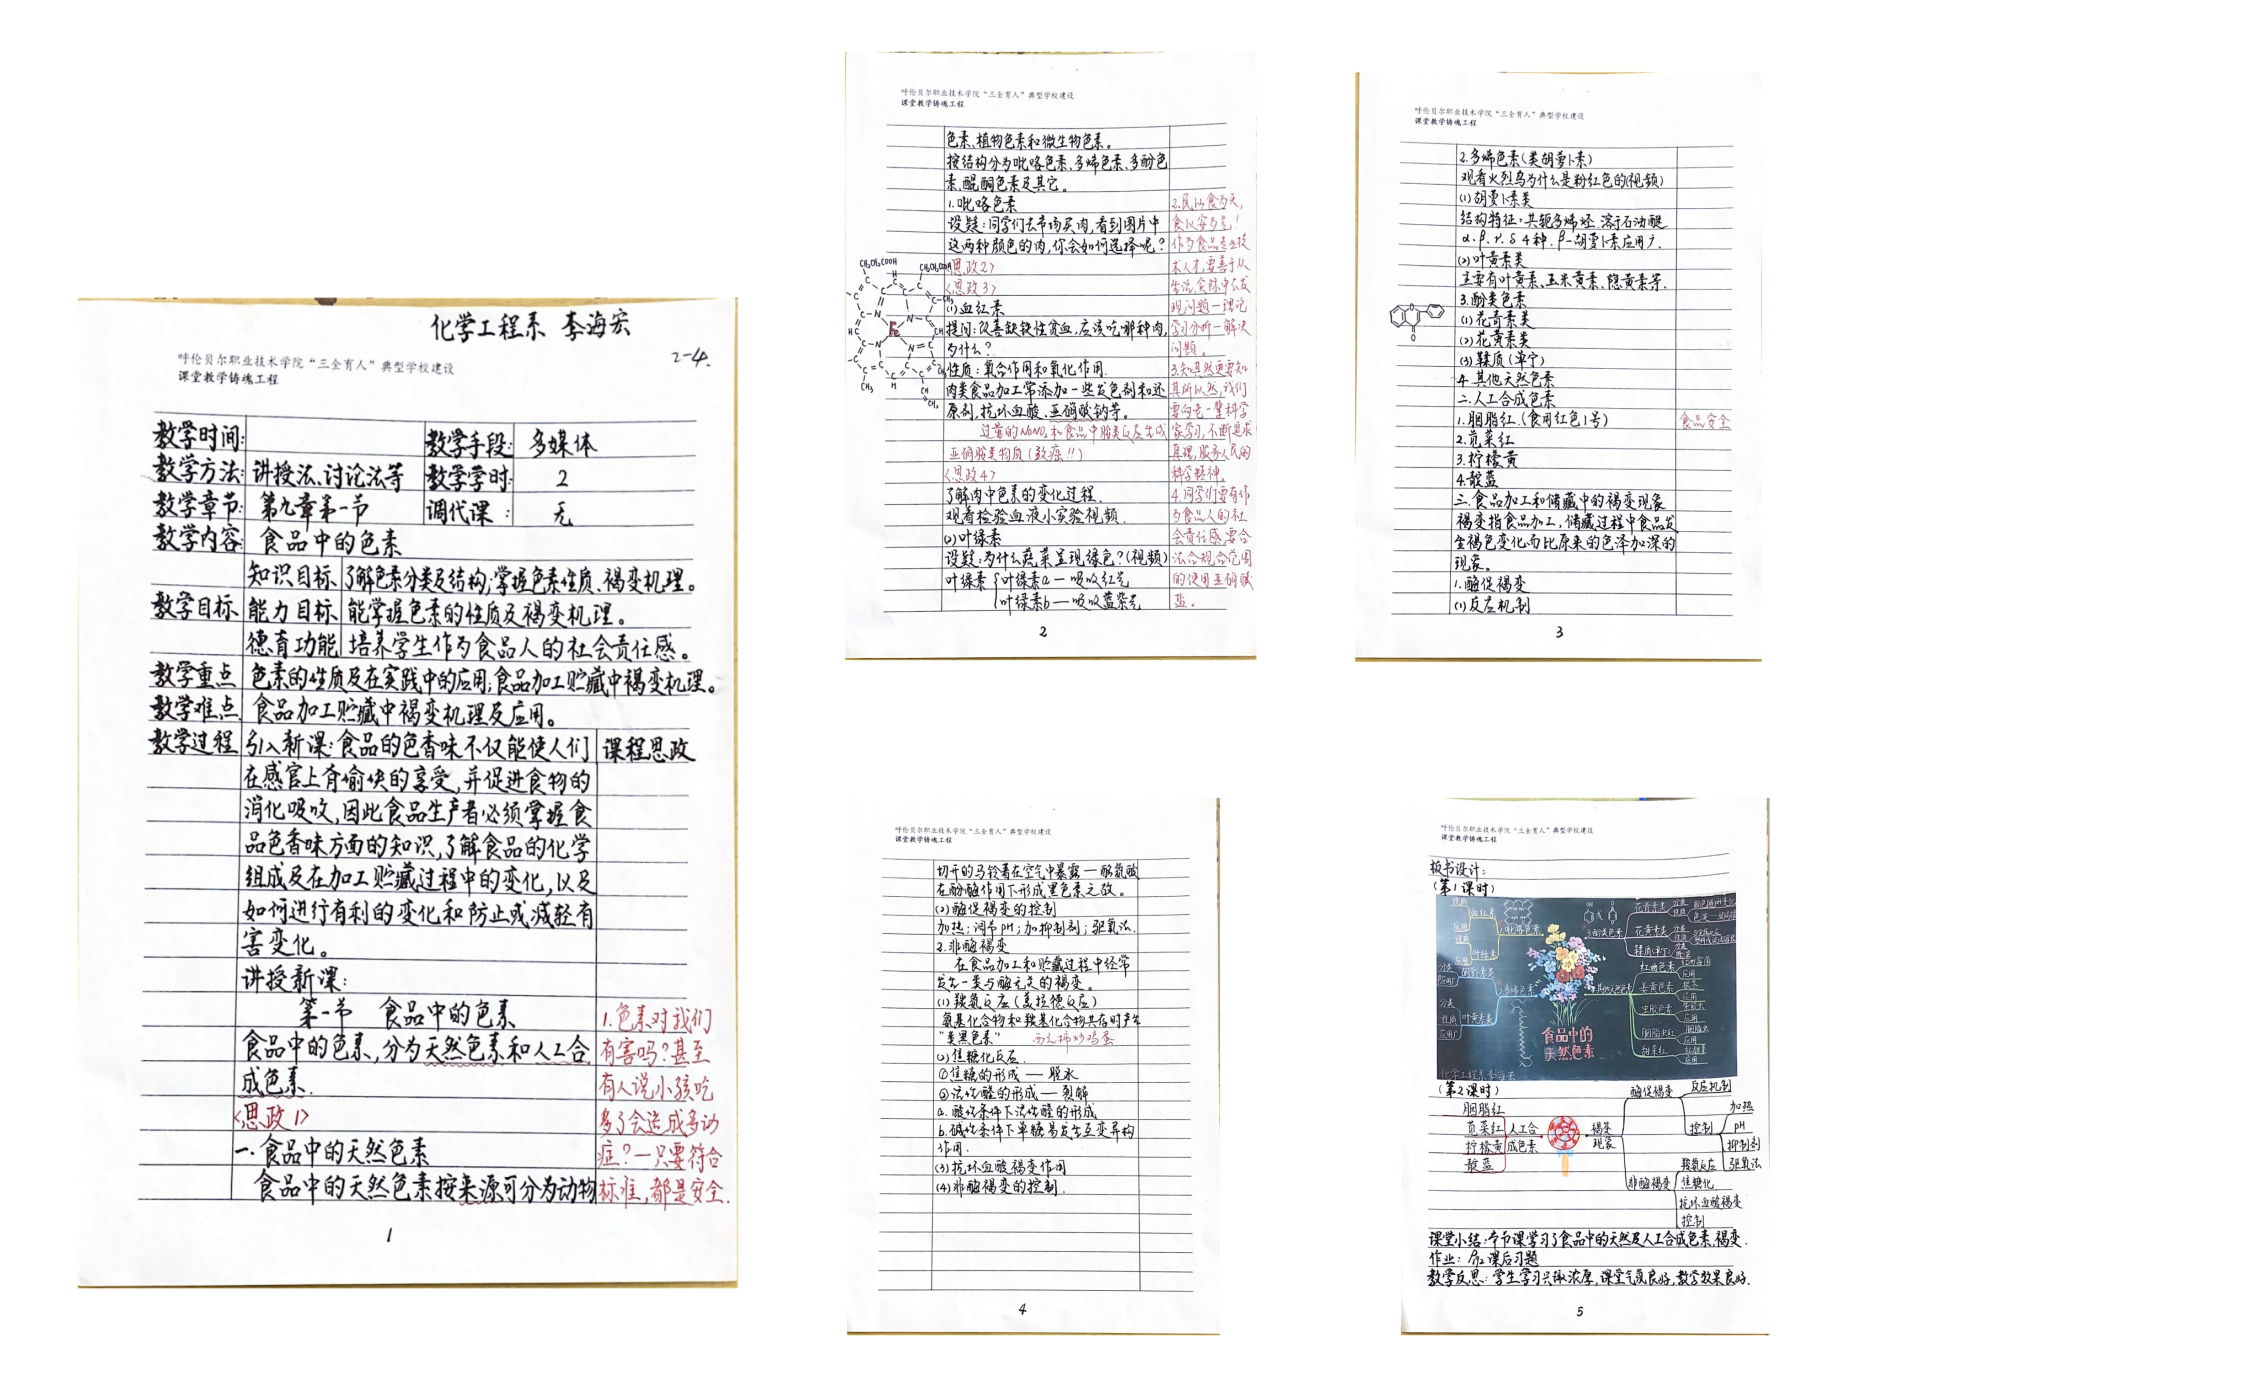 化学工程系 李海宏
呼伦贝尔职业技术学院“三全育人”典型学校建设
课堂教学铸魂工程
2-4.
教学时间:
教学手段: 多媒体
教学方法: 讲授法、讨论法等
教学学时: 2
教学章节: 第九章第一节
调代课: 无
教学内容: 食品中的色素
知识目标 了解色素分类及结构;掌握色素性质、褐变机理。
教学目标 能力目标 能掌握色素的性质及褐变机理。
德育功能 培养学生作为食品人的社会责任感。
教学重点 色素的性质及在实践中的应用;食品加工贮藏中褐变机理。
教学难点 食品加工贮藏中褐变机理及应用。
教学过程 引入新课:食品的色香味不仅能使人们 课程思政
在感官上有愉快的享受,并促进食物的
消化吸收,因此食品生产者必须掌握食
品色香味方面的知识,了解食品的化学
组成及在加工贮藏过程中的变化,以及
如何进行有利的变化和防止或减轻有
害变化。
讲授新课:
第一节 食品中的色素
食品中的色素,分为天然色素和人工合
成色素.
<思政1>
一.食品中的天然色素
食品中的天然色素按来源可分为动物
1.色素对我们
有害吗?甚至
有人说小孩吃
多了会造成多动
症?一只要符合
标准,都是安全.
1
呼伦贝尔职业技术学院“三全育人”典型学校建设
课堂教学铸魂工程
色素、植物色素和微生物色素。
按结构分为吡咯色素、多烯色素、多酚色
素、醌酮色素及其它。
1.吡咯色素
设疑:同学们去市场买肉,看到图片中
这两种颜色的肉,你会如何选择呢?
<思政2>
<思政3>
(1)血红素
提问:改善缺铁性贫血,应该吃哪种肉,
为什么?
性质:氧合作用和氧化作用.
肉类食品加工常添加一些发色剂和还
原剂,抗坏血酸、亚硝酸钠等。
过量的NaNO₂和食品中胺类反应生成
亚硝胺类物质(致癌!!)
<思政4>
了解肉中色素的变化过程.
观看检验血液小实验视频.
(2)叶绿素
设疑:为什么蔬菜呈现绿色?(视频)
叶绿素 叶绿素a—吸收红光
叶绿素b—吸收蓝紫光
2.民以食为天,
食以安为先!
作为食品专业技
术人才,要善于从
生活、实际中去发
现问题—理论
学习分析—解决
问题。
3.知其然更要知
其所以然,我们
要向老一辈科学
家学习,不断追求
真理,服务人民的
科学精神。
4.同学们要有作
为食品人的社
会责任感,要合
法合规合范围
的使用亚硝酸
盐。
CH₂CH₂COOH
CH₂CH₂COOH
Fe
CH₃
2
呼伦贝尔职业技术学院“三全育人”典型学校建设
课堂教学铸魂工程
2.多烯色素(类胡萝卜素)
观看火烈鸟为什么是粉红色的(视频)
(1)胡萝卜素类
结构特征:共轭多烯烃.溶于石油醚
α.β.γ.δ 4种.β-胡萝卜素应用广.
(2)叶黄素类
主要有叶黄素、玉米黄素、隐黄素等.
3.酚类色素
(1)花青素类
(2)花黄素类
(3)鞣质(单宁)
4.其他天然色素
二.人工合成色素
1.胭脂红.(食用红色1号) 食品安全
2.苋菜红
3.柠檬黄
4.靛蓝
三.食品加工和储藏中的褐变现象
褐变指食品加工,储藏过程中食品发
生褐色变化而比原来的色泽加深的
现象。
1.酶促褐变
(1)反应机制
3
呼伦贝尔职业技术学院“三全育人”典型学校建设
课堂教学铸魂工程
切开的马铃薯在空气中暴露—酪氨酸
在酚酶作用下形成黑色素之故。
(2)酶促褐变的控制
加热;调节pH;加抑制剂;驱氧法.
2.非酶褐变
在食品加工和贮藏过程中经常
发生一类与酶无关的褐变。
(1)羰氨反应(美拉德反应)
氨基化合物和羰基化合物共存时产生
“类黑色素” 西红柿炒鸡蛋
(2)焦糖化反应.
①焦糖的形成—脱水
②活性醛的形成—裂解
a.酸性条件下活性醛的形成
b.碱性条件下单糖易发生互变异构
作用.
(3)抗坏血酸褐变作用
(4)非酶褐变的控制.
4
呼伦贝尔职业技术学院“三全育人”典型学校建设
课堂教学铸魂工程
板书设计:
(第1课时)
血红素
吡咯色素
叶绿素
胡萝卜素类
多烯色素
叶黄素类
花青素类
花黄素类
鞣质(单宁)
其他天然色素
红曲色素
姜黄色素
虫胶色素
胭脂虫红
甜菜红
食品中的
天然色素
化学工程系 李海宏
(第2课时)
胭脂红
苋菜红
柠檬黄
靛蓝
人工合
成色素
褐变
现象
酶促褐变
反应机制
控制
加热
pH
抑制剂
驱氧法
非酶褐变
羰氨反应
焦糖化
抗坏血酸褐变
控制
课堂小结:本节课学习了食品中的天然及人工合成色素,褐变.
作业: 课后习题
教学反思:学生学习兴趣浓厚,课堂气氛良好,教学效果良好.
5